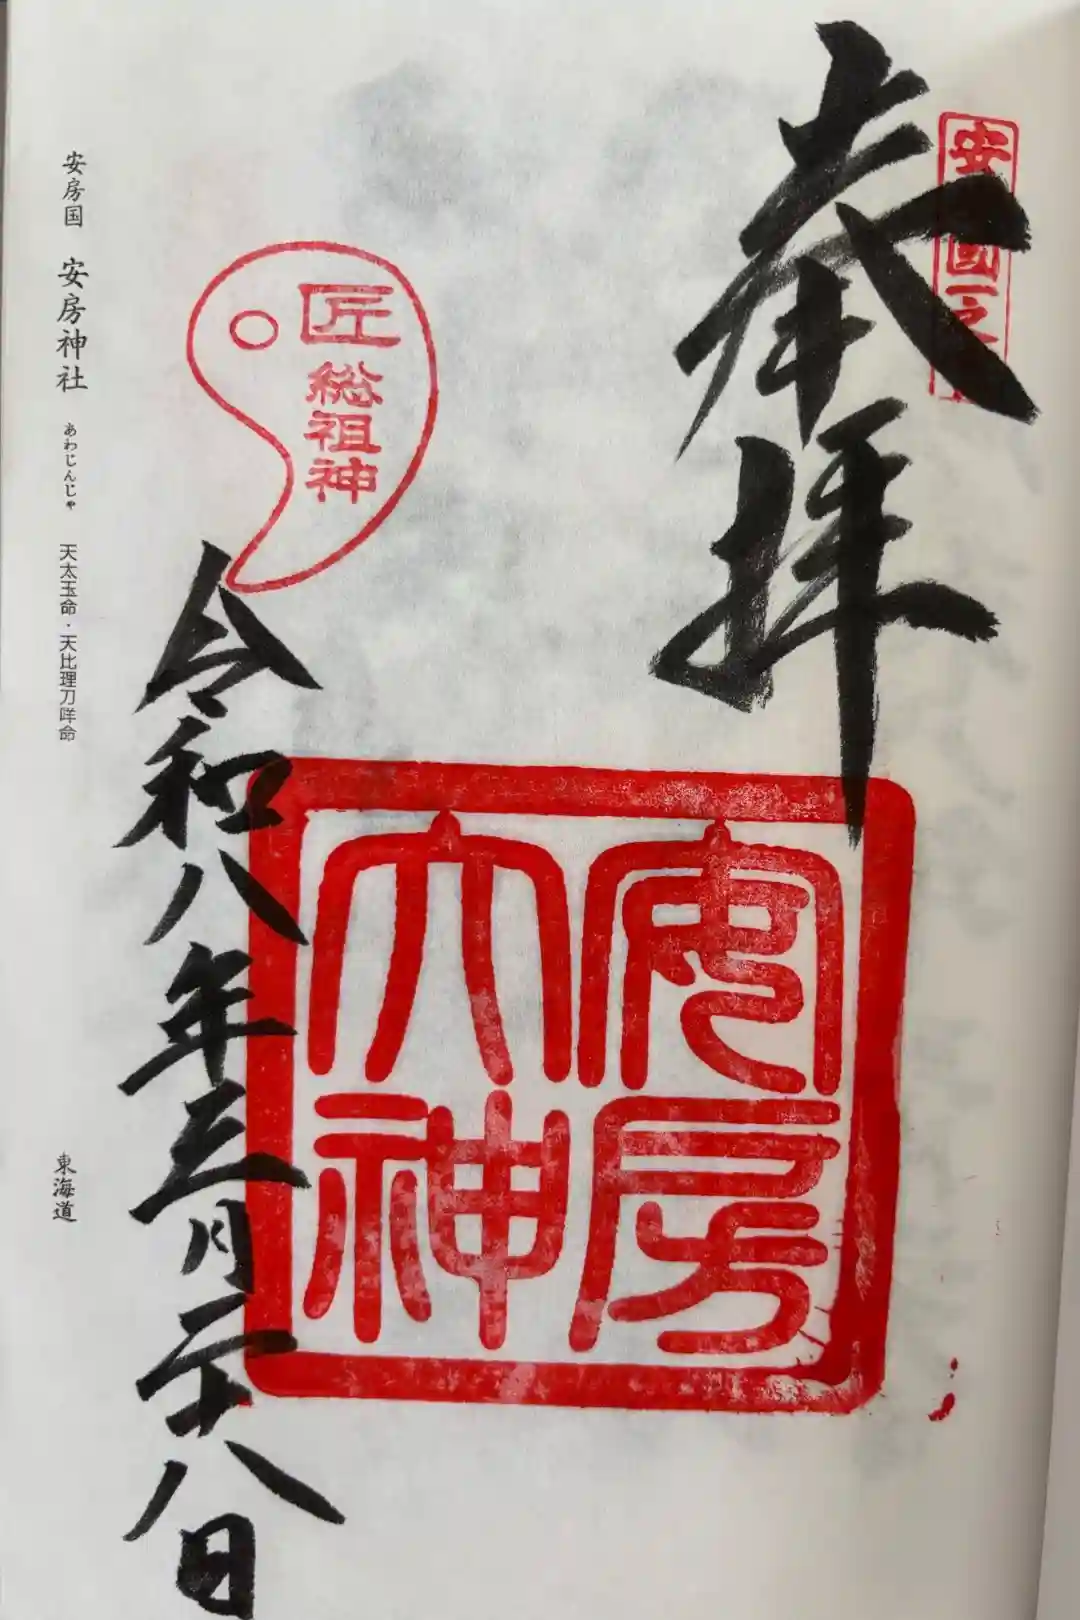 奉拝
安 國一之
安房
大神
匠
総祖神
令和八年三月二十八日
安房国 安房神社 あわじんじゃ 天太玉命・天比理刀咩命
東海道